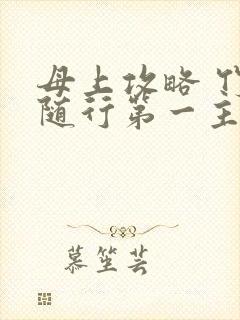 母上攻略
随行第一主
慕笙芸